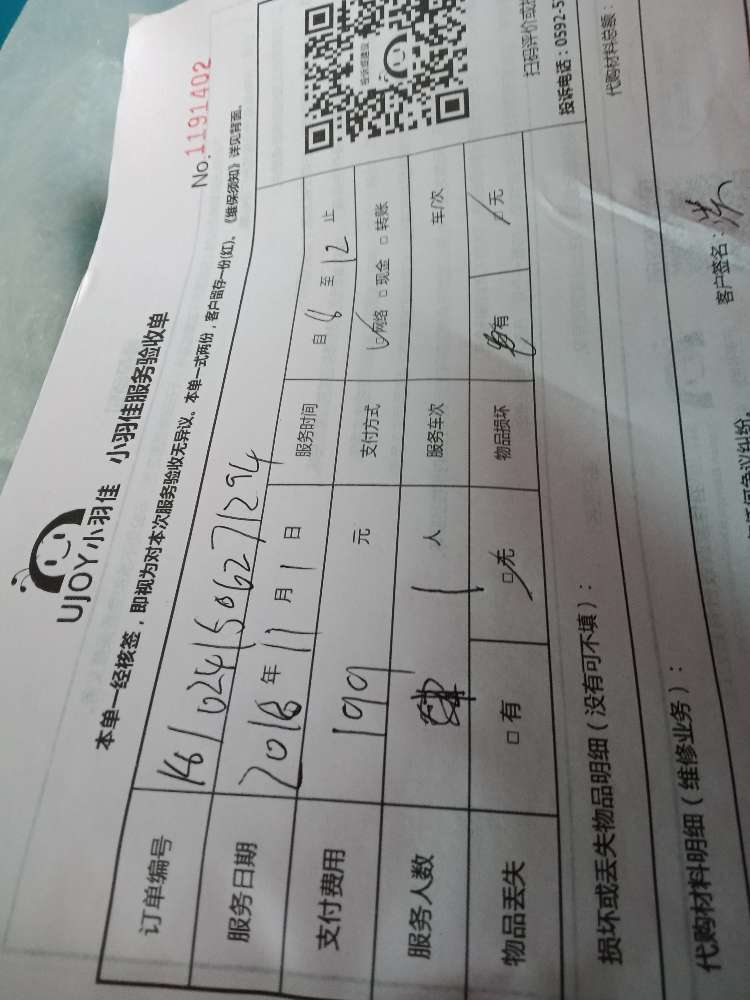 UJOY小羽佳 小羽佳服务验收单
No.1191402
本单一经核签，即视为对本次服务验收无异议。本单一式两份，客户留存一份(红)。《维保须知》详见背面。
订单编号
服务日期 2018年11月1日 服务时间 自8至12止
支付费用 199元 支付方式 网络 □现金 □转账
服务人数 1人 服务车次 车/次
物品丢失 □有 □无 物品损坏 有 无
扫码评价或
投诉电话：0592-5
损坏或丢失物品明细（没有可不填）：
代购材料明细（维修业务）：
代购材料总额：
客户签名：